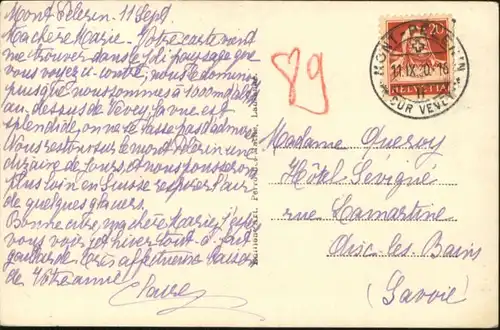 Mont Pèlerin. 11 Sept.
Ma chère Marie. Votre carte vient
me trouver dans le joli paysage que
vous voyez ci contre, nous le dominons
puisque nous sommes à 1000 m d'alt.
au-dessus de Vevey. La vue est
splendide, on ne se lasse pas d'admirer
Nous restons sur le mont Pèlerin une
dizaine de jours, et nous pousserons
plus loin en Suisse respirer l'air
de quelques glaciers.
Bonne cure, ma chère Marie, j'espère
vous voir cet hiver tout à fait
gaillarde. Très affectueux baisers
de Votre amie
Claire
89
20
HELVETIA
MONT-PÈLERIN
11.IX.20.-16
SUR VEVEY
Madame Queroy
Hôtel Sévigné
rue Lamartine
Aix-les-Bains
(Savoie)